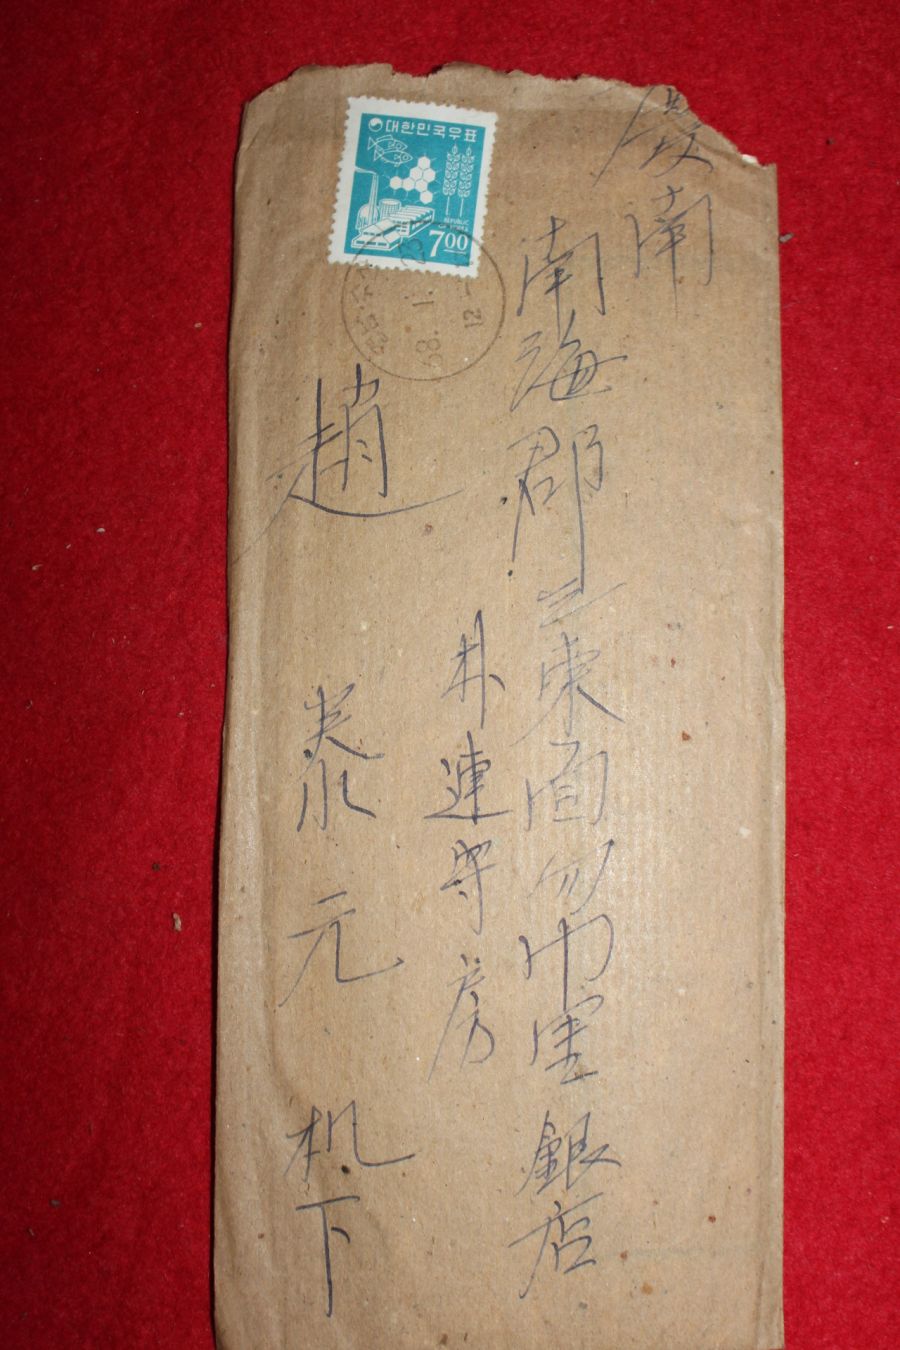 대한민국우표
REPUBLIC
OF KOREA
700
68.1.23
12
慶南
南海郡二東面勿巾里銀店
朴連守房
趙泰元机下